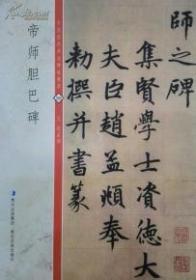 帝师胆巴碑
師之碑
集賢學士資德大
夫臣趙孟頫奉
勅撰并書篆